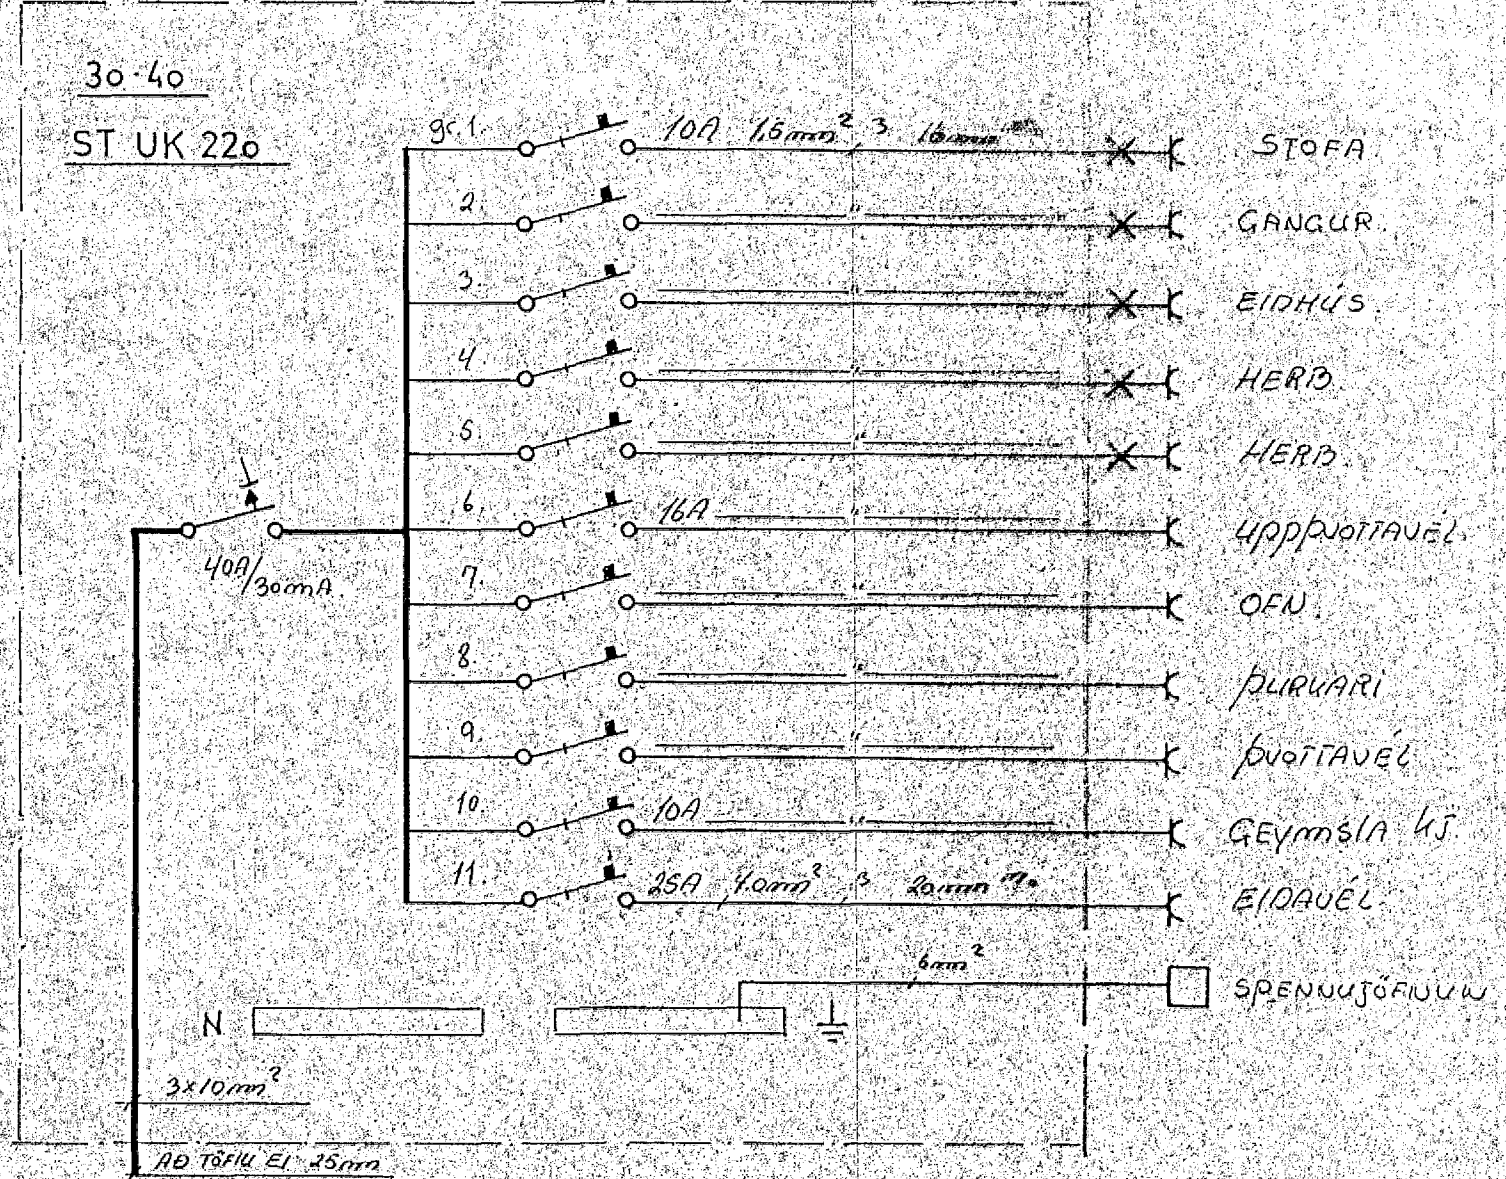 30-40
ST UK 220
gr. 1. 10A 1,5mm² 3 16mm STOFA.
2. " GANGUR.
3. " ELDHÚS.
4. " HERB.
5. " HERB.
6. 16A " UPPÞVOTTAVÉL.
7. " OFN.
8. " ÞURKARI
9. " ÞVOTTAVÉL
10. 10A " GEYMSLA KJ.
11. 25A 4.0mm² 3 20mm ELDAVÉL.
40A/30mA.
6mm² SPENNUJÖFNUN
N
3x10mm²
AÐ TÖFLU E1 25mm